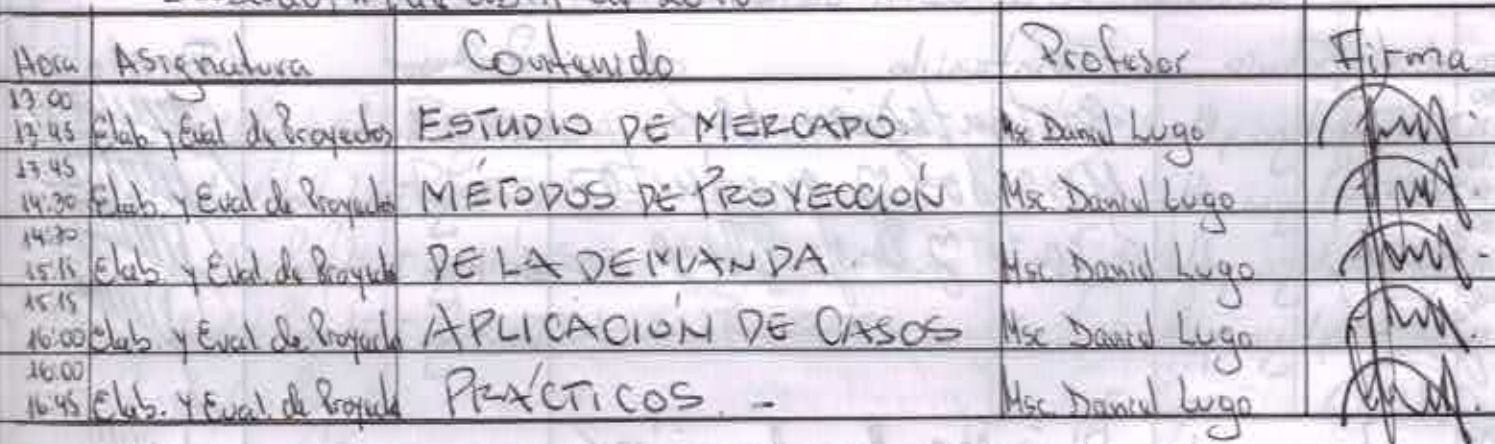 Hora Asignatura Contenido Profesor Firma
13:00
13:45 Elab. y Eval de Proyectos ESTUDIO DE MERCADO. Msc Daniel Lugo
13:45
14:30 Elab. y Eval de Proyectos MÉTODOS DE PROYECCIÓN Msc. Daniel Lugo
14:30
15:15 Elab. y Eval. de Proyecto DE LA DEMANDA. Msc. Daniel Lugo
15:15
16:00 Elab. y Eval. de Proyecto APLICACIÓN DE CASOS Msc Daniel Lugo
16:00
16:45 Elab. y Eval. de Proyecto PRÁCTICOS. - Msc. Daniel Lugo